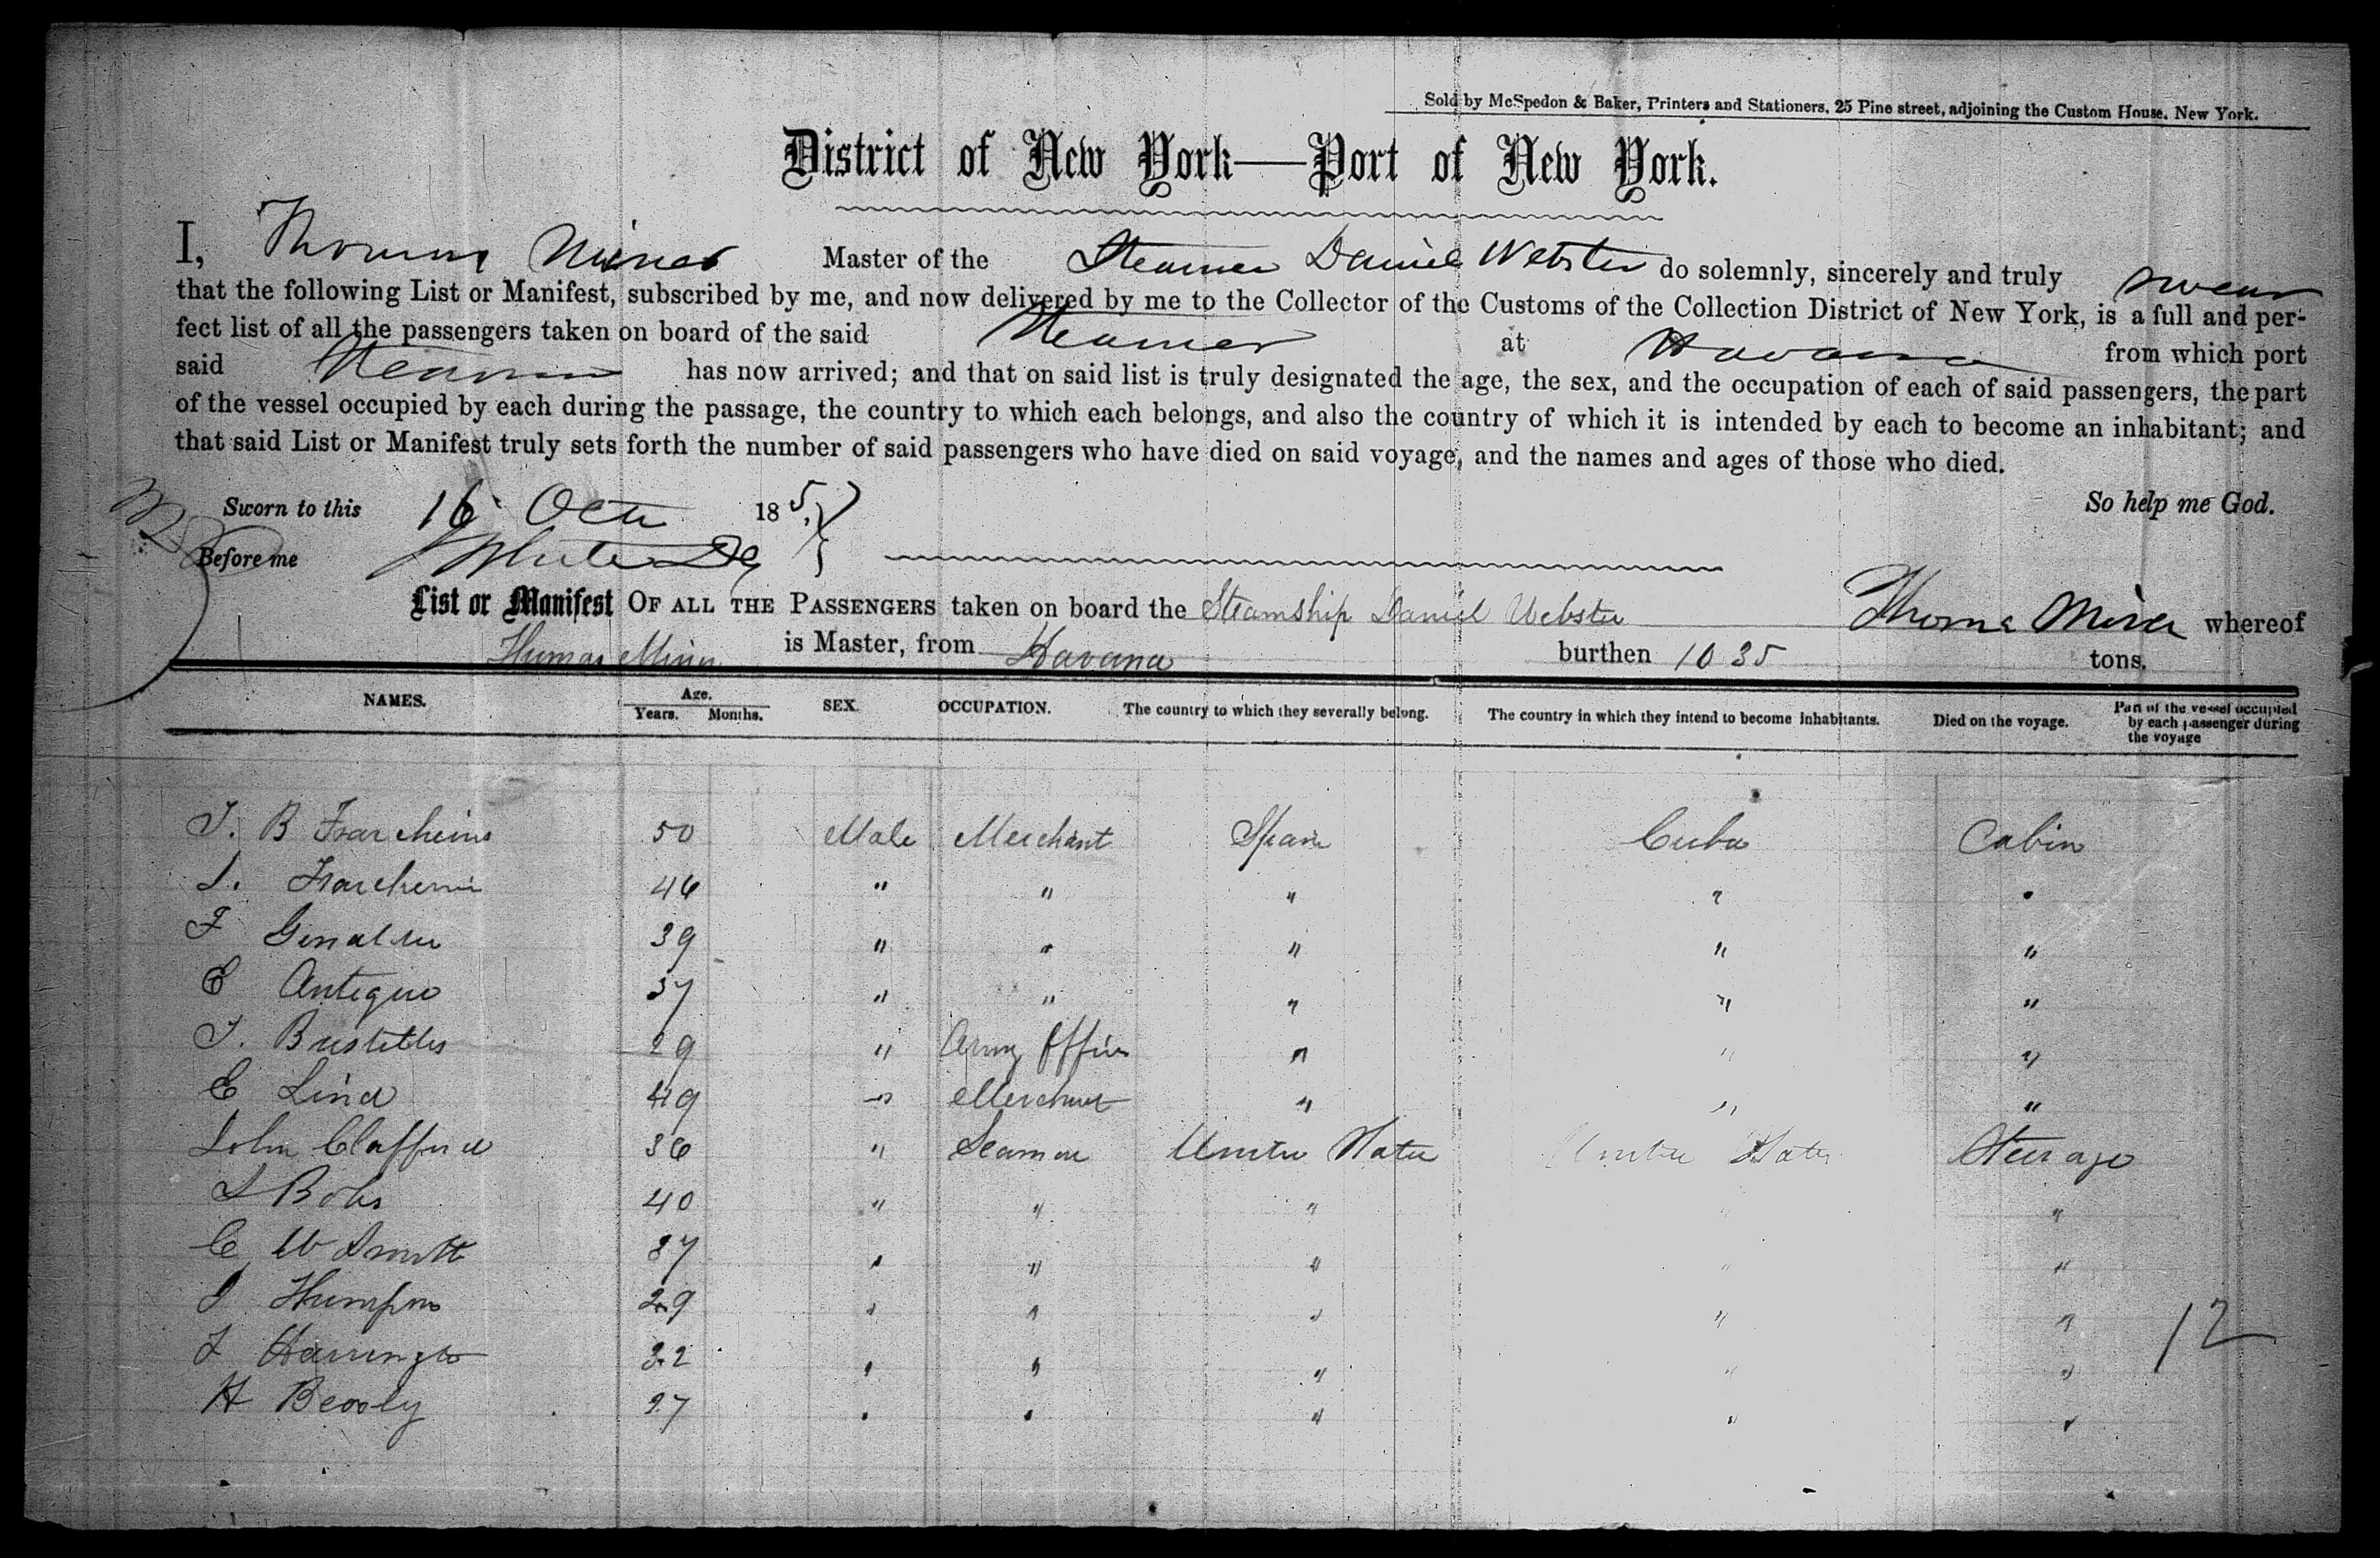 Sold by McSpedon & Baker, Printers and Stationers, 25 Pine street, adjoining the Custom House, New York.
District of New York—Port of New York.
I, Thomas Miner Master of the Steamer Daniel Webster do solemnly, sincerely and truly swear
that the following List or Manifest, subscribed by me, and now delivered by me to the Collector of the Customs of the Collection District of New York, is a full and per-
fect list of all the passengers taken on board of the said Steamer at Havana from which port
said Steamer has now arrived; and that on said list is truly designated the age, the sex, and the occupation of each of said passengers, the part
of the vessel occupied by each during the passage, the country to which each belongs, and also the country of which it is intended by each to become an inhabitant; and
that said List or Manifest truly sets forth the number of said passengers who have died on said voyage, and the names and ages of those who died.
So help me God.
Sworn to this 16 Oct 185
Before me
List or Manifest OF ALL THE PASSENGERS taken on board the Steamship Daniel Webster whereof
Thomas Miner is Master, from Havana burthen 1035 tons.
NAMES. Age. Years. Months. SEX. OCCUPATION. The country to which they severally belong. The country in which they intend to become inhabitants. Died on the voyage. Part of the vessel occupied by each passenger during the voyage
B 50 Male Merchant Spain Cuba Cabin
46 " " " " "
F 39 " " " " "
E Antequio 37 " " " " "
29 " Army " " "
E Lind 49 " Merchant " " "
John 36 " Seaman United States United States Steerage
40 " " " " "
C W Smith 37 " " " " "
29 " " " " "
Harrington 32 " " " " "
H 27 " " " " "
12